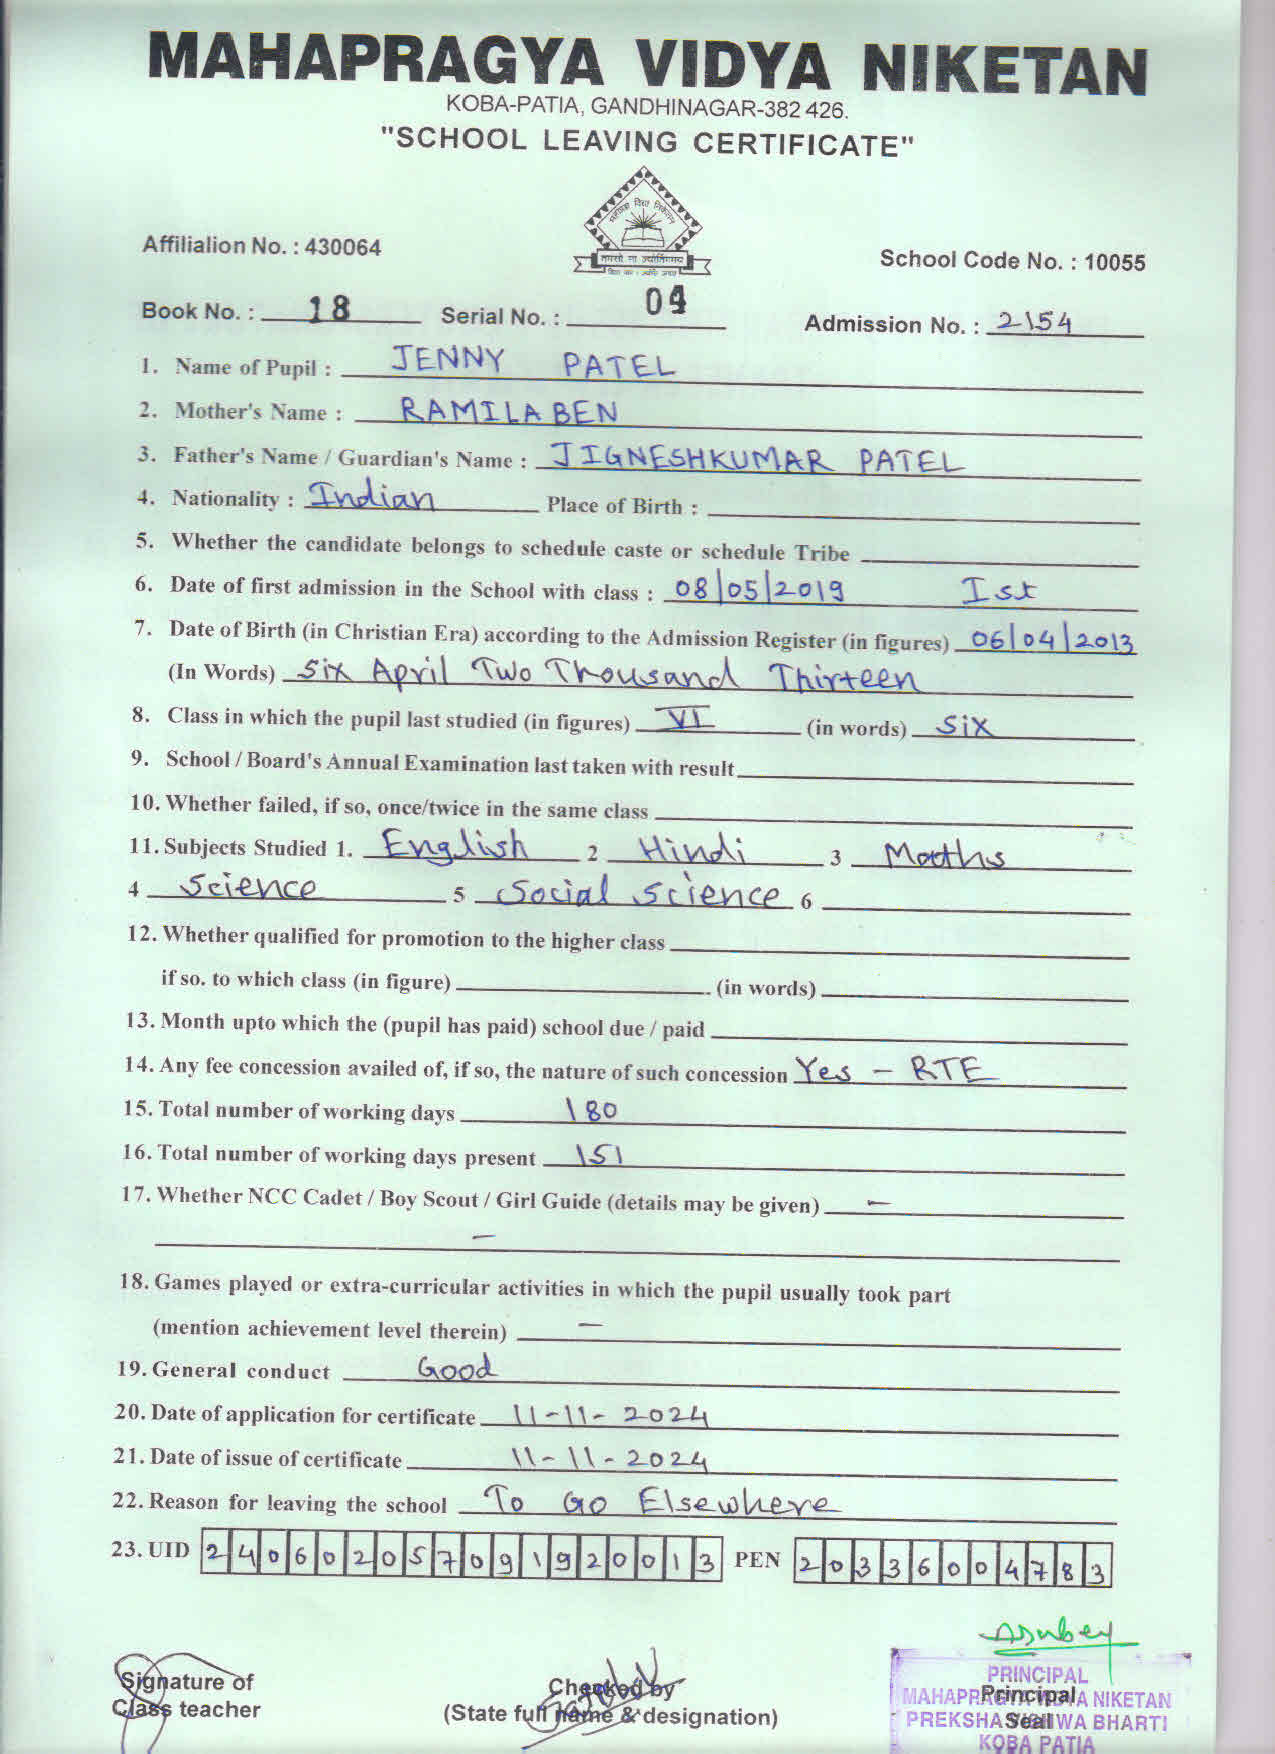 MAHAPRAGYA VIDYA NIKETAN
KOBA-PATIA, GANDHINAGAR-382 426.
"SCHOOL LEAVING CERTIFICATE"
महाप्रज्ञ विद्या निकेतन
तमसो मा ज्योतिर्गमय
Affilialion No. : 430064
School Code No. : 10055
Book No. : 18 Serial No. : 04 Admission No. : 2154
1. Name of Pupil : JENNY PATEL
2. Mother's Name : RAMILABEN
3. Father's Name / Guardian's Name : JIGNESHKUMAR PATEL
4. Nationality : Indian Place of Birth :
5. Whether the candidate belongs to schedule caste or schedule Tribe
6. Date of first admission in the School with class : 08/05/2019 Ist
7. Date of Birth (in Christian Era) according to the Admission Register (in figures) 06/04/2013
(In Words) Six April Two Thousand Thirteen
8. Class in which the pupil last studied (in figures) VI (in words) Six
9. School / Board's Annual Examination last taken with result
10. Whether failed, if so, once/twice in the same class
11. Subjects Studied 1. English 2 Hindi 3 Maths
4 Science 5 Social Science 6
12. Whether qualified for promotion to the higher class
if so. to which class (in figure) (in words)
13. Month upto which the (pupil has paid) school due / paid
14. Any fee concession availed of, if so, the nature of such concession Yes - RTE
15. Total number of working days 180
16. Total number of working days present 151
17. Whether NCC Cadet / Boy Scout / Girl Guide (details may be given) -
-
18. Games played or extra-curricular activities in which the pupil usually took part
(mention achievement level therein) -
19. General conduct Good
20. Date of application for certificate 11-11-2024
21. Date of issue of certificate 11-11-2024
22. Reason for leaving the school To Go Elsewhere
23. UID 240602057091920013 PEN 20336004783
Signature of
Class teacher
Checked by
(State full name & designation)
Principal
Seal
PRINCIPAL
MAHAPRAGYA VIDYA NIKETAN
PREKSHA VISHWA BHARTI
KOBA PATIA